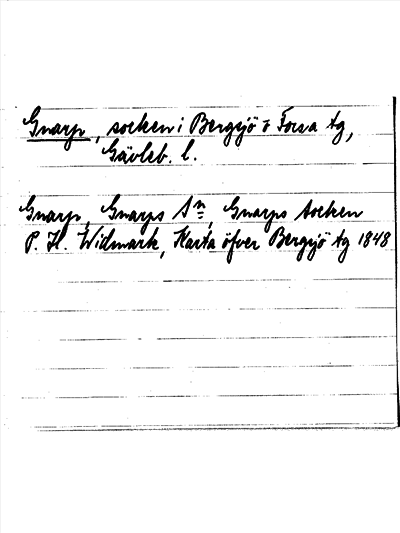 Gnarp, socken i Bergsjö o Forsa tg,
Gävleb. l.
Gnarp, Gnarps Sn, Gnarps Socken
P. H. Widmark, Karta öfver Bergsjö tg 1848